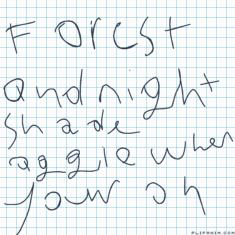 Forest
and night
shade
aggle when
your oh
FLIPANIM.COM